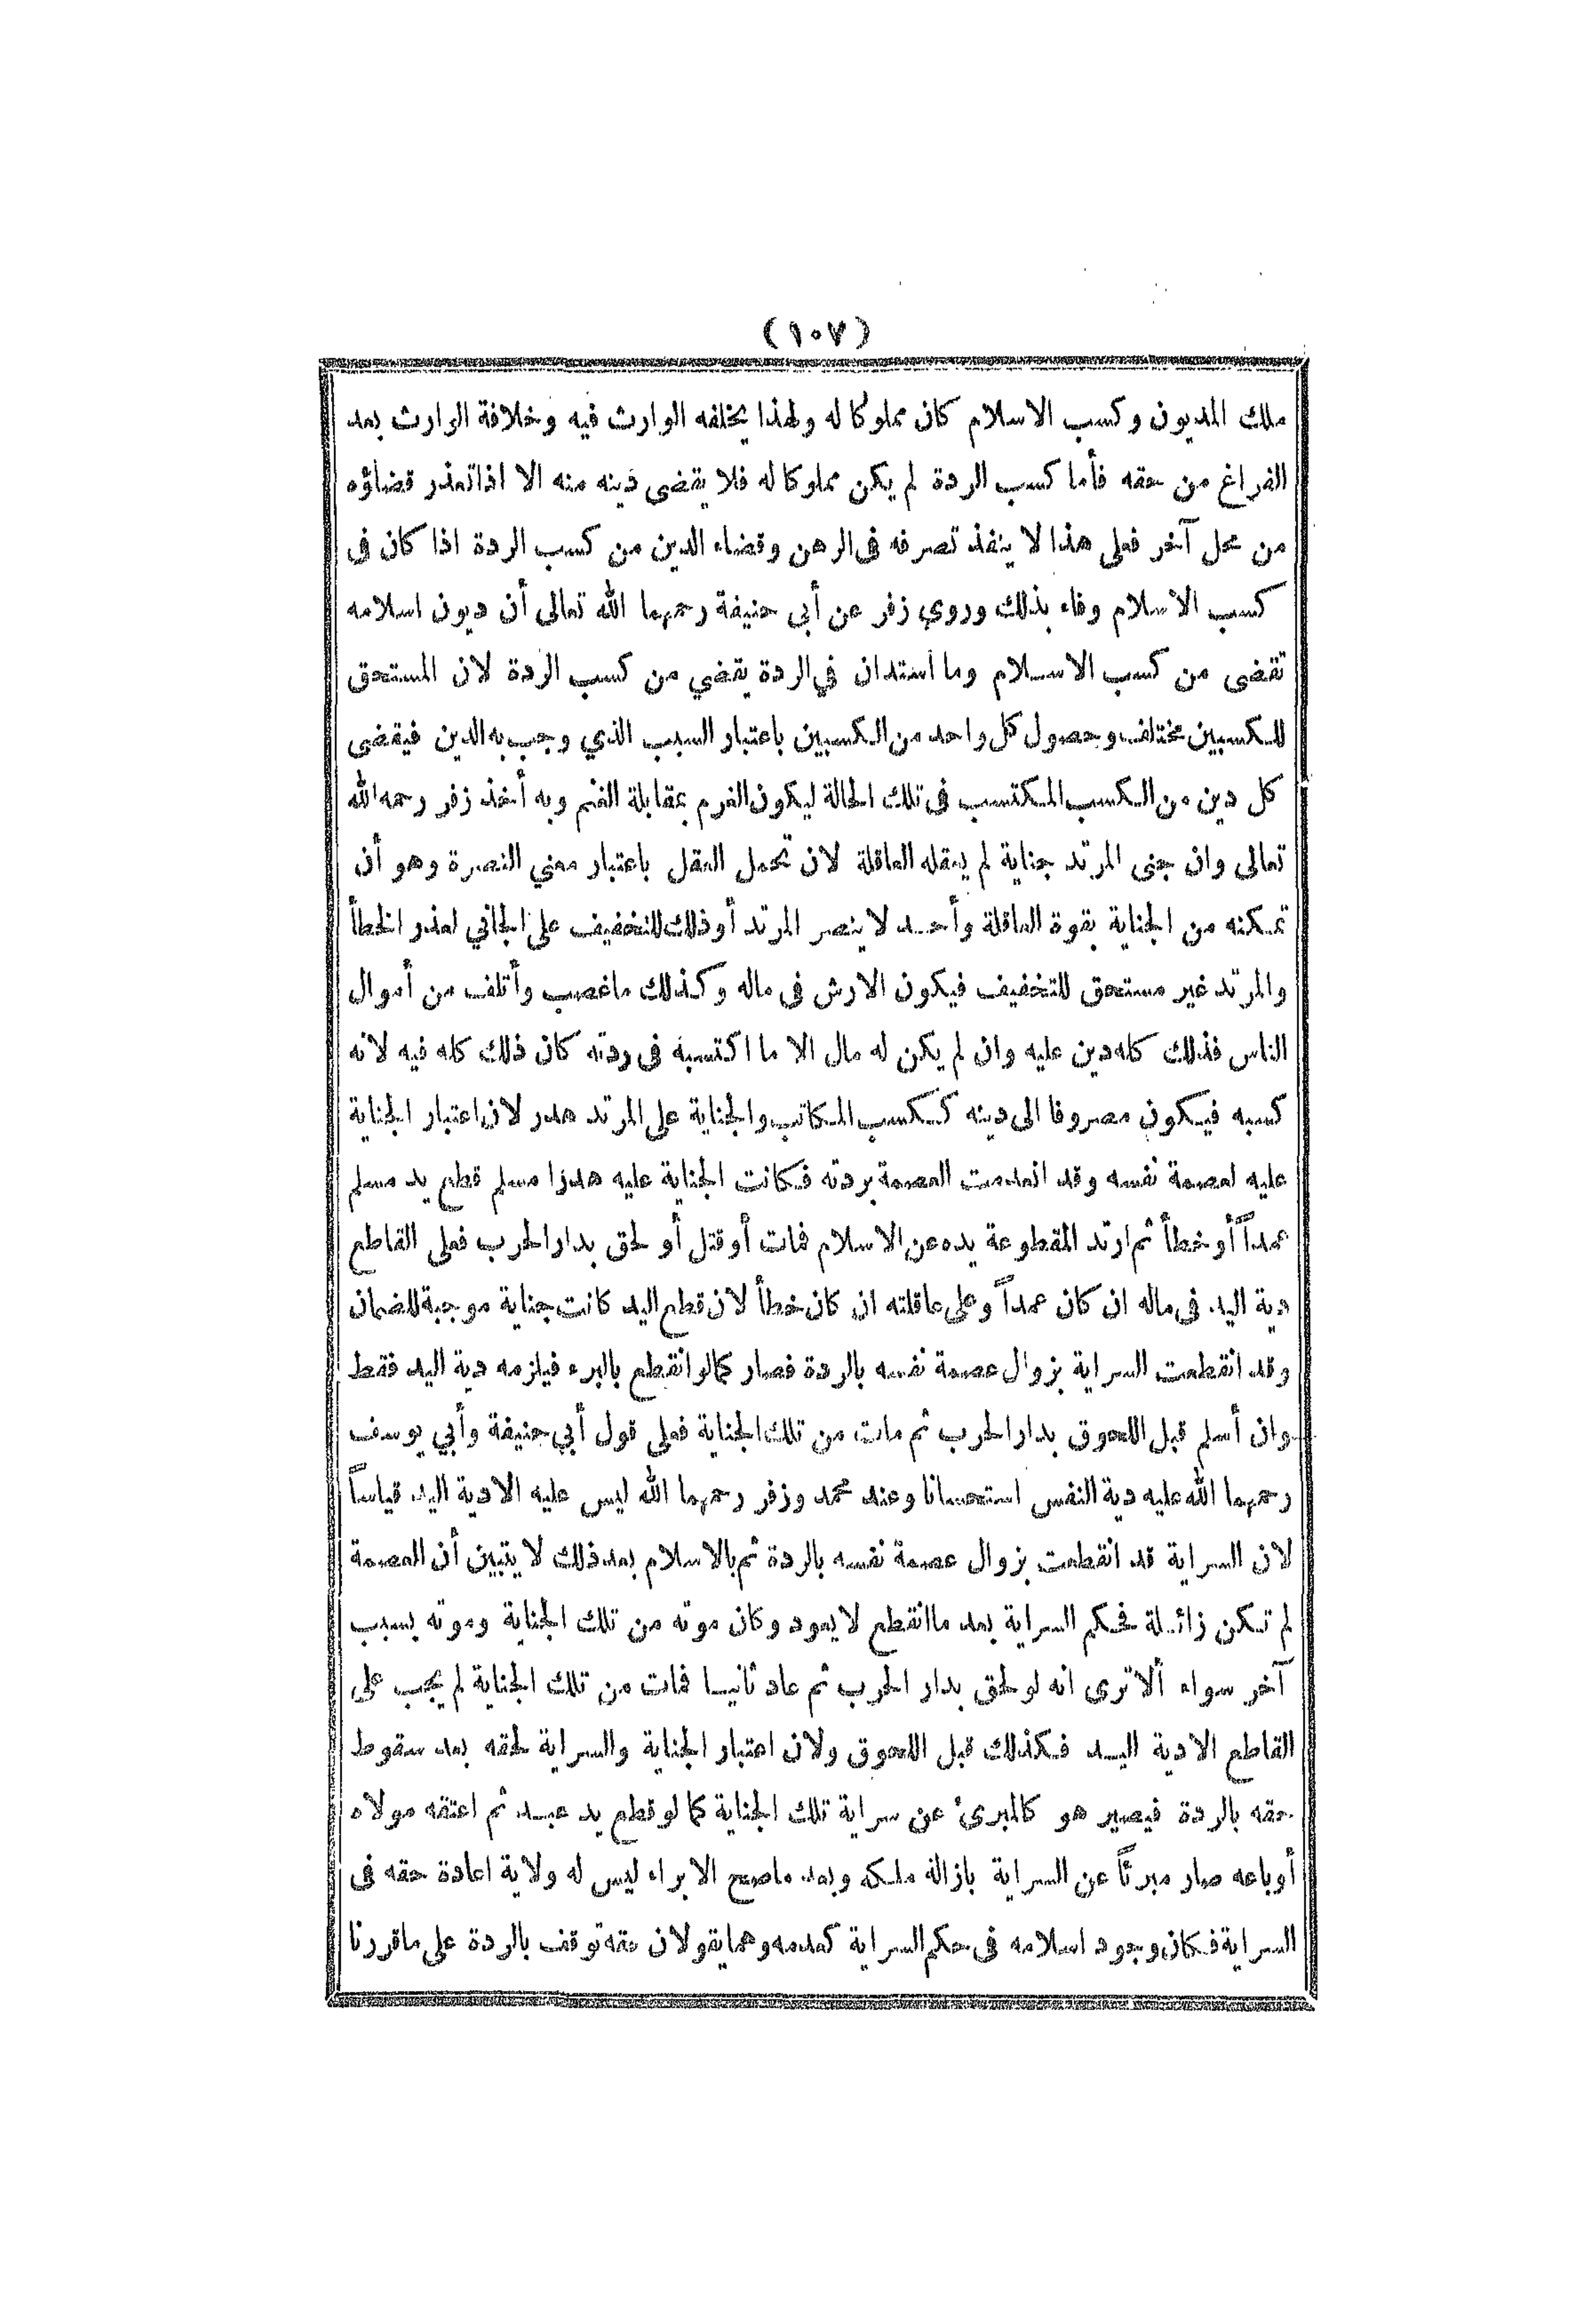 (١٠٧)
ملك المديون وكسب الاسلام كان مملوكا له ولهذا يخلفه الوارث فيه وخلافة الوارث بعد
الفراغ من حقه فأما كسب الردة لم يكن مملوكا له فلا يقضى دينه منه الا اذا تعذر قضاؤه
من محل آخر فعلى هذا لا ينفذ تصرفه فى الرهن وقضاء الدين من كسب الردة اذا كان فى
كسب الاسلام وفاء بذلك وروي زفر عن أبى حنيفة رحمهما الله تعالى أن ديون اسلامه
تقضى من كسب الاسلام وما استدان في الردة يقضي من كسب الردة لان المستحق
للكسبين مختلف وحصول كل واحد من الكسبين باعتبار السبب الذي وجب به الدين فيقضى
كل دين من الكسب المكتسب فى تلك الحالة ليكون الغرم بمقابلة الغنم وبه أخذ زفر رحمه الله
تعالى وان جنى المرتد جناية لم يعقله العاقلة لان تحمل العقل باعتبار معني النصرة وهو أن
تمكنه من الجناية بقوة العاقلة وأحد لا ينصر المرتد أو ذلك للتخفيف على الجاني لعذر الخطأ
والمرتد غير مستحق للتخفيف فيكون الارش فى ماله وكذلك ما غصب وأتلف من أموال
الناس فذلك كله دين عليه وان لم يكن له مال الا ما اكتسبه فى ردته كان ذلك كله فيه لانه
كسبه فيكون مصروفا الى دينه ككسب المكاتب والجناية على المرتد هدر لان اعتبار الجناية
عليه لعصمة نفسه وقد انعدمت العصمة بردته فكانت الجناية عليه هدرا مسلم قطع يد مسلم
عمداً أو خطأ ثم ارتد المقطوعة يده عن الاسلام فمات أو قتل أو لحق بدار الحرب فعلى القاطع
دية اليد فى ماله ان كان عمداً وعلى عاقلته ان كان خطأ لان قطع اليد كانت جناية موجبة للضمان
وقد انقطعت السراية بزوال عصمة نفسه بالردة فصار كما لو انقطع بالبرء فيلزمه دية اليد فقط
وان أسلم قبل اللحوق بدار الحرب ثم مات من تلك الجناية فعلى قول أبي حنيفة وأبي يوسف
رحمهما الله عليه دية النفس استحسانا وعند محمد وزفر رحمهما الله ليس عليه الا دية اليد قياساً
لان السراية قد انقطعت بزوال عصمة نفسه بالردة ثم بالاسلام بعد ذلك لا يتبين أن العصمة
لم تكن زائلة فحكم السراية بعد ما انقطع لا يعود وكان موته من تلك الجناية وموته بسبب
آخر سواء ألا ترى انه لو لحق بدار الحرب ثم عاد ثانيا فمات من تلك الجناية لم يجب على
القاطع الا دية اليد فكذلك قبل اللحوق ولان اعتبار الجناية والسراية لحقه بعد سقوط
حقه بالردة فيصير هو كالمبرئ عن سراية تلك الجناية كما لو قطع يد عبد ثم اعتقه مولاه
أو باعه صار مبرئاً عن السراية بازالة ملكه وبعد ما صح الابراء ليس له ولاية اعادة حقه فى
السراية فكان وجود اسلامه فى حكم السراية كعدمه وهما يقولان حقه توقف بالردة على ما قررنا